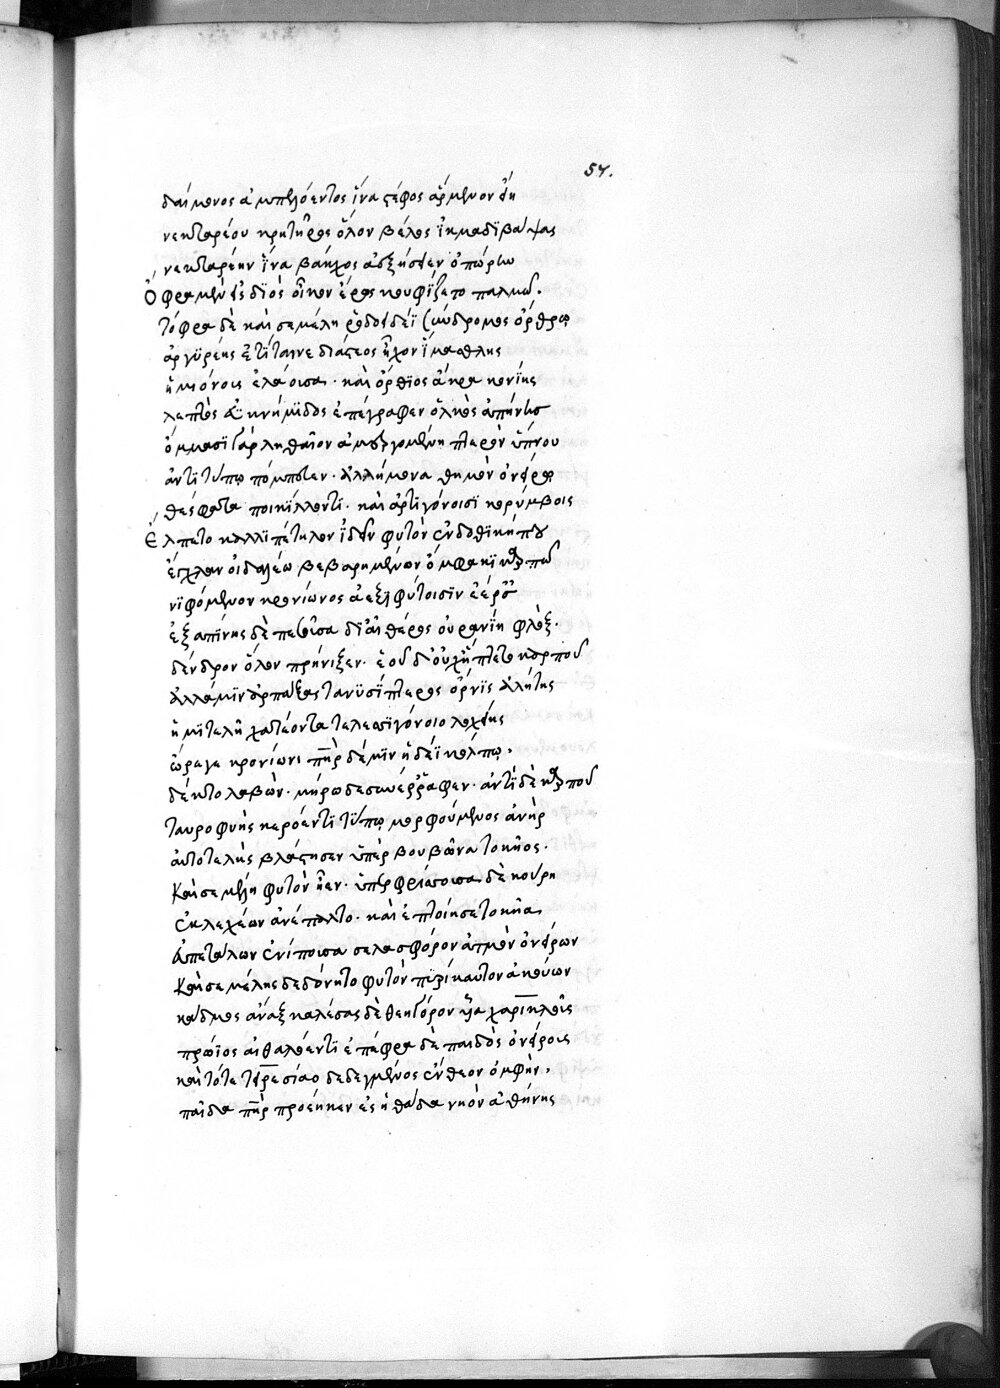 57.
δαίμονος ἀμπελόεντος ἵνα στέφος ἄρμενον εἴη
νεκταρέου κρητῆρος ὅλον βέλος ἰκμάδι βάψας
νεκταρέην ἵνα βάκχος ἀεξήσειεν ὀπώρην
Ὄφρα μὲν εἰς διὸς οἶκον ἔρως κουφίζετο παλμῶ.
τόφρα δὲ καὶ σεμέλη ῥοδοειδέϊ σύνδρομος ὄρθρω
ἀργυρέης ἐτίταινε δι' ἄστεος ἦχον ἱμάσθλης
ἡμιόνους ἐλάουσα. καὶ ὄρθιος ἄκρα κονίης
λεπτὸς ἐϋκνήμιδος ἐπέγραφεν ὁλκὸς ἀπήνης
ὄμμασι γὰρ ληθαῖον ἀμεργομένη πτερὸν ὕπνου
ἀντιτύπω πόμπευεν. ἀλήμονα θυμὸν ὀνείρω
θέσφατα ποικίλλοντι. καὶ ἀρτιγόνοισι κορύμβοις
Ἔλπετο καλλιπέτηλον ἰδεῖν φυτὸν ἔνδοθι κήπου
ἔγχλοον οἰδαλέω βεβαρημένον ὄμφακι καρπῶ
νιφόμενον κρονίωνος ἀεξιφύτοισιν ἐέρσαις
ἐξαπίνης δὲ πεσοῦσα δι' αἰθέρος οὐρανίη φλὸξ.
δένδρον ὅλον πρήνιξεν. ἑοῦ δ' οὐχ ἥπτετο καρποῦ
ἀλλά μιν ἁρπάξας τανυσίπτερος ὄρνις ἀλήτης
ἡμιτελῆ χατέοντα τελεσσιγόνοιο λοχείης
ὤρεγε κρονίωνι πὴρ δέ μιν ἡδέϊ κόλπω.
δέκτο λαβὼν. μηρῶ δὲ συνέρραφεν. ἀντὶ δὲ καρποῦ
ταυροφυὴς κερόεντι τύπω μορφούμενος ἀνὴρ
αὐτοτελὴς βλάστησεν ὑπὲρ βουβῶνα τοκῆος.
Καὶ σεμέλη φυτὸν ἦεν. ὑπερφρίσσουσα δὲ κούρη
ἐκ λεχέων ἀνέπαλτο. καὶ ἐπτοίησε τοκῆα
εὐπετάλων ἐνέπουσα σελασφόρον ἀτμὸν ὀνείρων
Καὶ σεμέλης δεδόνητο φυτὸν πυρίκαυτον ἀκούων
κάδμος ἄναξ καλέσας δὲ θεηγόρον υἷα χαρικλοῦς
πρώϊος αἰθαλόεντι ἐπέφρα δὲ παιδὸς ὀνείρους
καὶ τότε τειρεσίαο δεδεγμένος ἔνθεον ὀμφὴν.
παῖδα πὴρ προέηκεν ἐς ἠθάδα νηὸν ἀθήνης